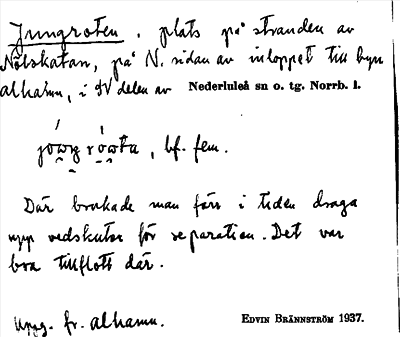 Jungroten, plats på stranden av
Nölskatan, på N. sidan av inloppet till byn
alhamn, i SV delen av Nederluleå sn o. tg. Norrb. l.
bf. fem.
Där brukade man förr i tiden draga
upp vedskutor för reparation. Det var
bra tillflott där.
Uppg. fr. alhamn.
EDVIN BRÄNNSTRÖM 1937.